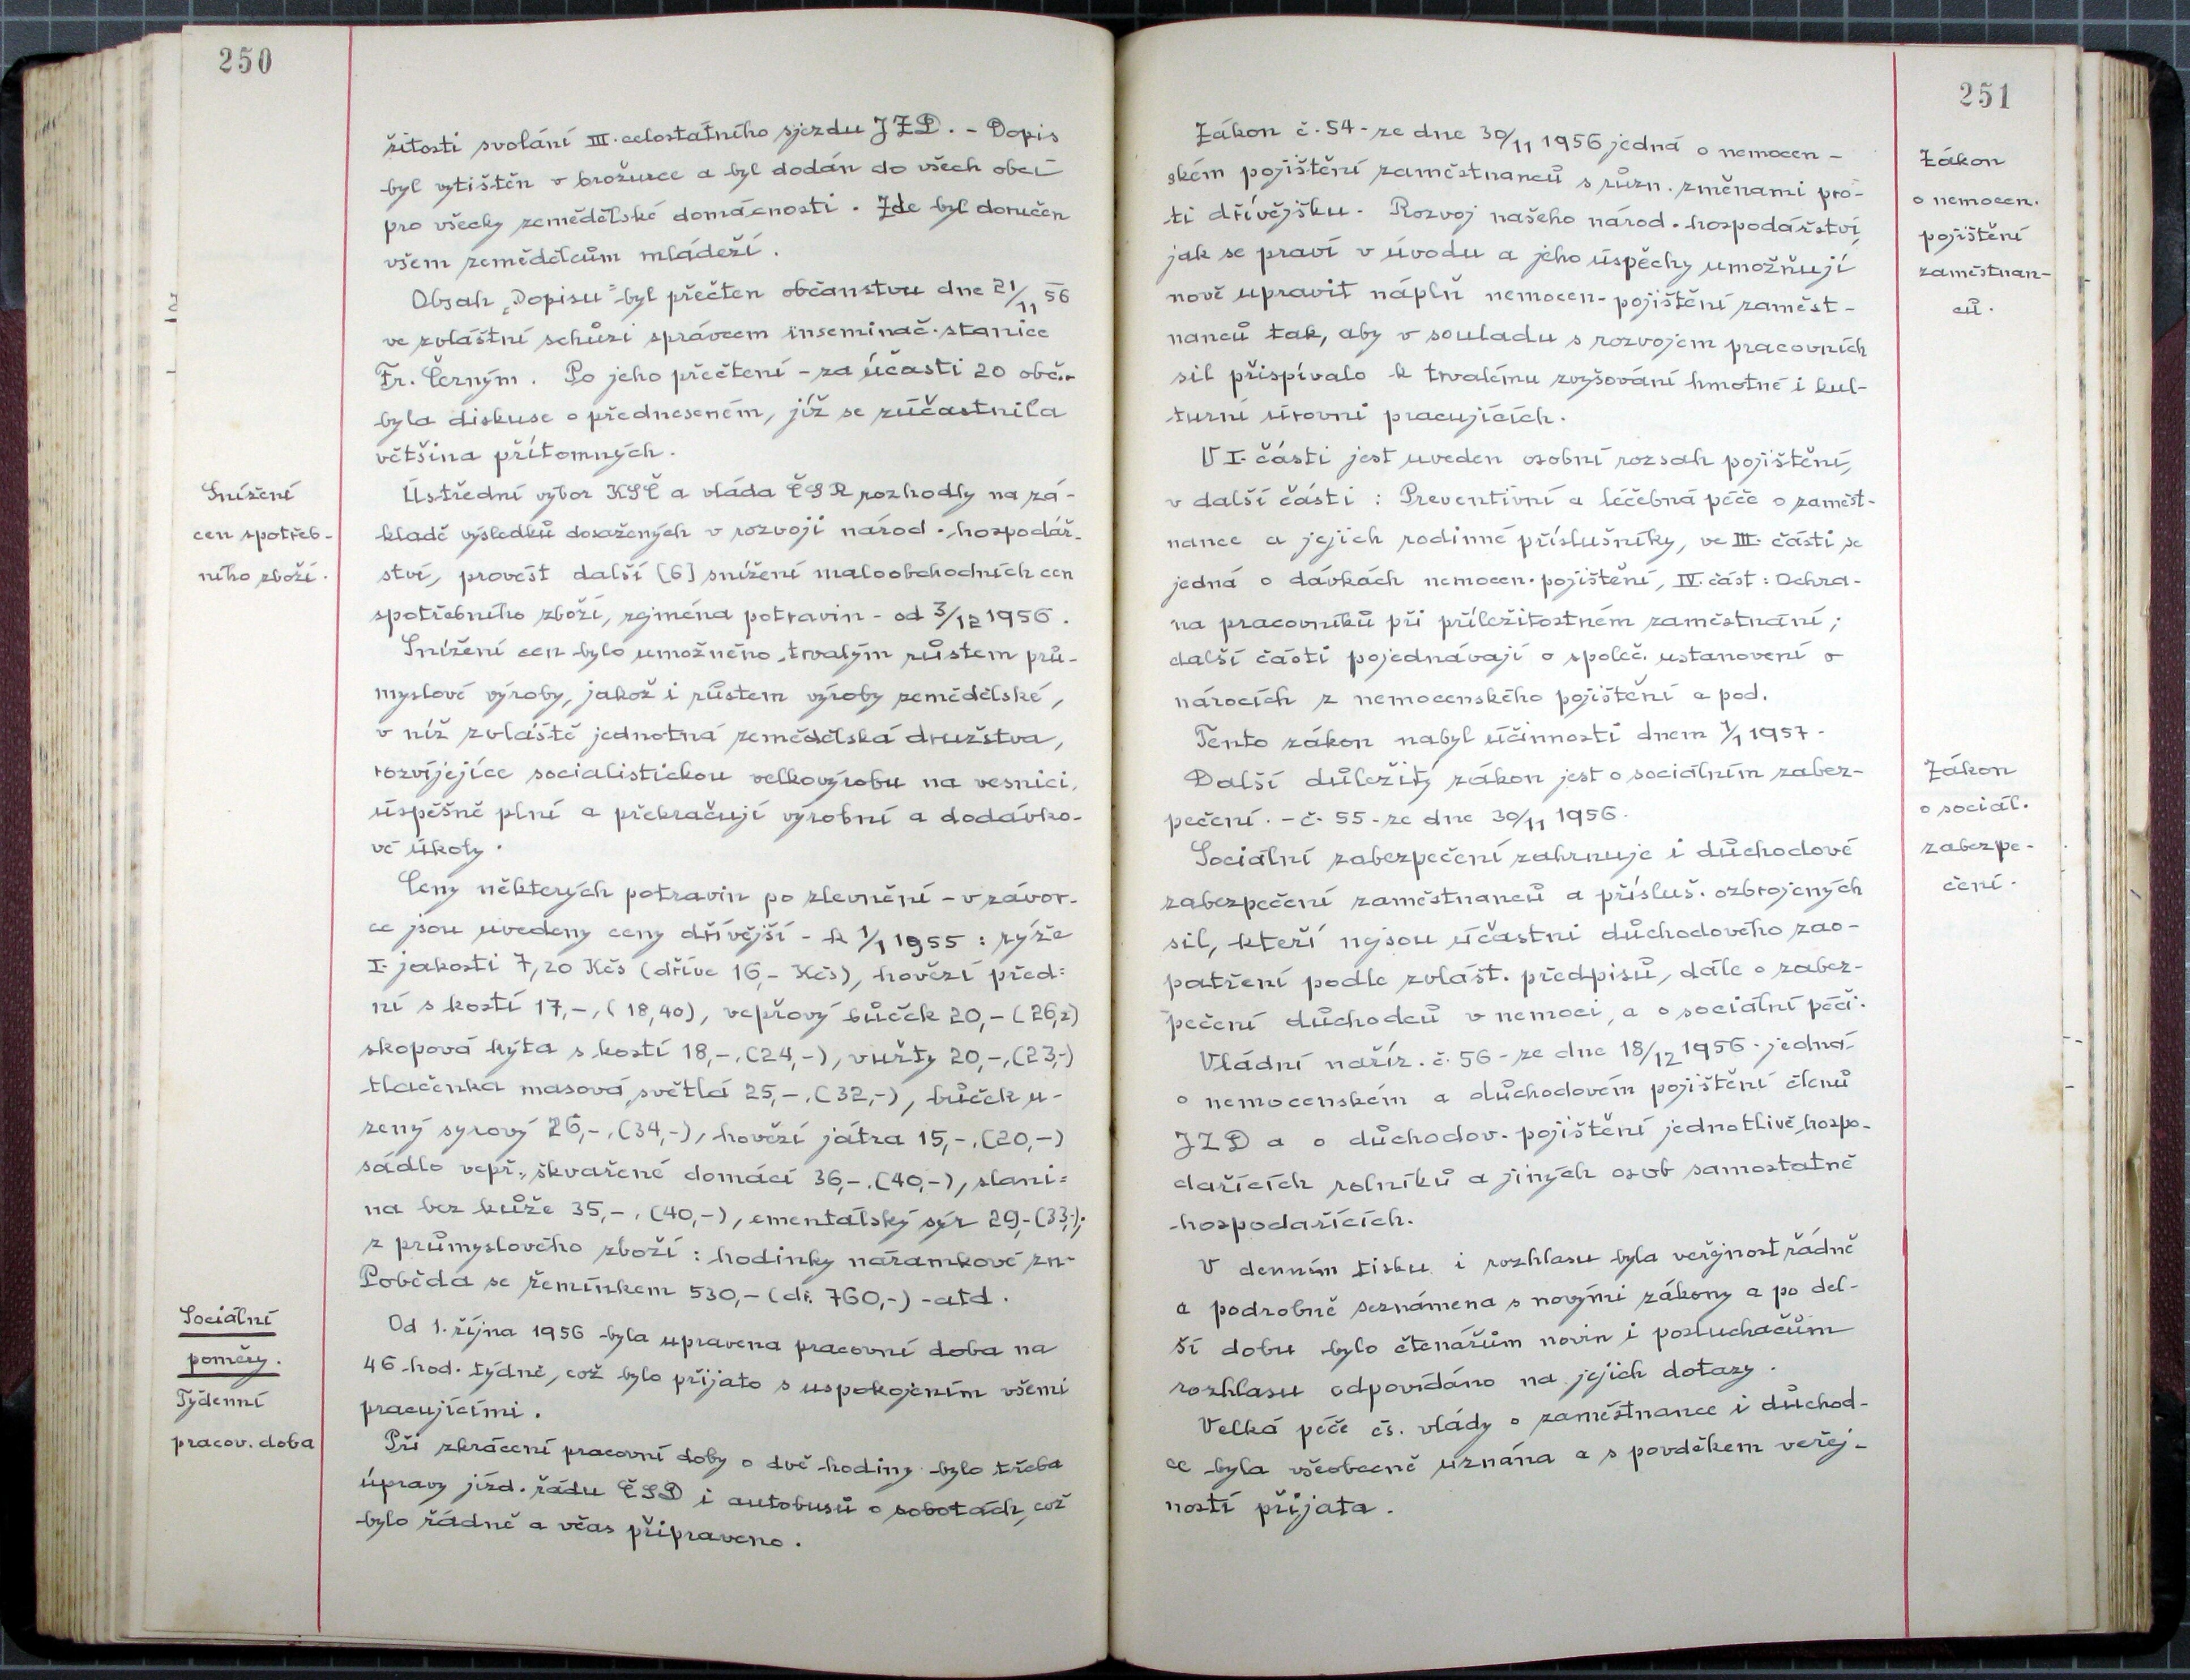 250
žitosti svolání III. celostatního sjezdu JZD. - Dopis
byl vytištěn v brožurce a byl dodán do všech obcí
pro všecky zemědělské domácnosti. Zde byl doručen
všem zemědělcům mládeží.
Obsah „Dopisu" byl přečten občanstvu dne 21/11 56
ve zvláštní schůzi správcem inseminač. stanice
Fr. Černým. Po jeho přečtení - za účasti 20 obč.-
byla diskuse o předneseném, jíž se zúčastnila
většina přítomných.
Snížení
cen spotřeb-
ního zboží.
Ústřední výbor KSČ a vláda ČSR rozhodly na zá-
kladě výsledků dosažených v rozvoji národ. hospodář-
ství, provést další [6] snížení maloobchodních cen
spotřebního zboží, zejména potravin - od 3/12 1956.
Snížení cen bylo umožněno trvalým růstem prů-
myslové výroby, jakož i růstem výroby zemědělské,
v níž zvláště jednotná zemědělská družstva,
rozvíjejíce socialistickou velkovýrobu na vesnici,
úspěšně plní a překračují výrobní a dodávko-
vé úkoly.
Ceny některých potravin po zlevnění - v závor-
ce jsou uvedeny ceny dřívější - k 1/1 1955 : rýže
I. jakosti 7,20 Kčs (dříve 16,- Kčs), hovězí před=
ní s kostí 17,-, (18,40), vepřový bůček 20,- (26,2)
skopová kýta s kostí 18,-, (24,-), vuřty 20,-, (23,-)
tlačenka masová světlá 25,-, (32,-), bůček u-
zený syrový 26,-, (34,-), hovězí játra 15,-, (20,-)
sádlo vepř., škvařené domácí 36,-, (40,-), slani=
na bez kůže 35,-, (40,-), ementálský sýr 29,- (33,-);
z průmyslového zboží : hodinky náramkové zn.
Poběda se řemínkem 530,- (dř. 760,-) - atd.
Sociální
poměry.
Týdenní
pracov. doba
Od 1. října 1956 byla upravena pracovní doba na
46 hod. týdně, což bylo přijato s uspokojením všemi
pracujícími.
Při zkrácení pracovní doby o dvě hodiny bylo třeba
úpravy jízd. řádu ČSD i autobusů o sobotách, což
bylo řádně a včas připraveno.
251
Zákon č. 54 - ze dne 30/11 1956 jedná o nemocen-
ském pojištění zaměstnanců s různ. změnami pro-
ti dřívějšku. Rozvoj našeho národ. hospodářství,
jak se praví v úvodu a jeho úspěchy umožňují
nově upravit náplň nemocen. pojištění zaměst-
nanců tak, aby v souladu s rozvojem pracovních
sil přispívalo k trvalému zvyšování hmotné i kul-
turní úrovni pracujících.
Zákon
o nemocen.
pojištění
zaměstnan-
ců.
V I. části jest uveden osobní rozsah pojištění,
v další části : Preventivní a léčebná péče o zaměst-
nance a jejich rodinné příslušníky, ve III. části se
jedná o dávkách nemocen. pojištění, IV. část : Ochra-
na pracovníků při příležitostném zaměstnání;
další části pojednávají o společ. ustanovení o
nárocích z nemocenského pojištění a pod.
Tento zákon nabyl účinnosti dnem 1/1 1957.
Další důležitý zákon jest o sociálním zabez-
pečení. - č. 55 - ze dne 30/11 1956.
Zákon
o sociál.
zabezpe-
čení.
Sociální zabezpečení zahrnuje i důchodové
zabezpečení zaměstnanců a přísluš. ozbrojených
sil, kteří nejsou účastni důchodového zao-
patření podle zvlášt. předpisů, dále o zabez-
pečení důchodců v nemoci, a o sociální péči.
Vládní naříz. č. 56 - ze dne 18/12 1956 - jedná
o nemocenském a důchodovém pojištění členů
JZD a o důchodov. pojištění jednotlivě hospo-
dařících rolníků a jiných osob samostatně
hospodařících.
V denním tisku i rozhlasu byla veřejnost řádně
a podrobně seznámena s novými zákony a po del-
ší dobu bylo čtenářům novin i posluchačům
rozhlasu odpovídáno na jejich dotazy.
Velká péče čs. vlády o zaměstnance i důchod-
ce byla všeobecně uznána a s povděkem veřej-
ností přijata.